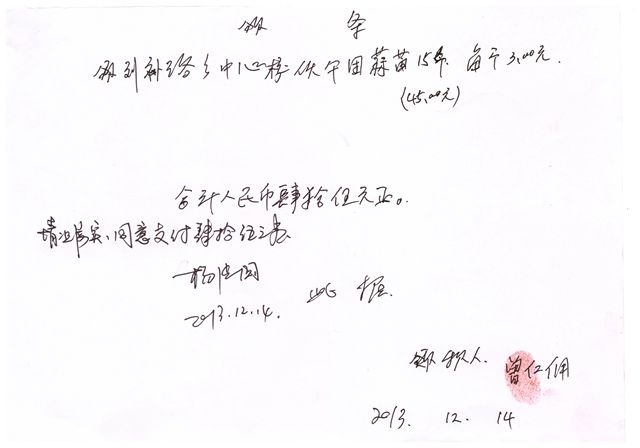 领 条
领到补络乡中心校伙午团蒜苗15斤 每斤3.00元.
(45.00元)
合计人民币肆拾伍元正。
情况属实、同意支付肆拾伍元
2013.12.14.
此 据.
领款人.曾仁佣
2013. 12. 14